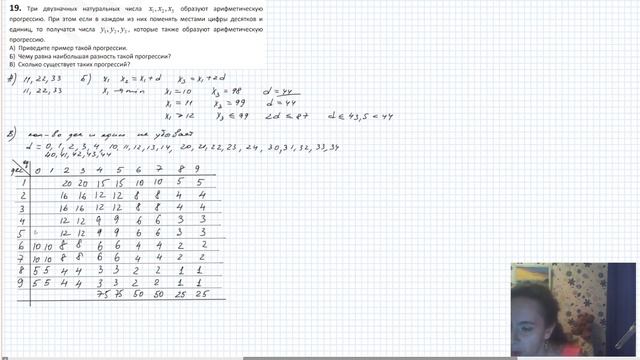 19. Три двузначных натуральных числа x₁, x₂, x₃ образуют арифметическую
прогрессию. При этом если в каждом из них поменять местами цифры десятков и
единиц, то получатся числа y₁, y₂, y₃, которые также образуют арифметическую
прогрессию.
А) Приведите пример такой прогрессии.
Б) Чему равна наибольшая разность такой прогрессии?
В) Сколько существует таких прогрессий?
А) 11, 22, 33 Б) x₁ x₂ = x₁ + d x₃ = x₁ + 2d
11, 22, 33 x₁ → min x₁ = 10 x₃ = 98 d = 44
x₁ = 11 x₃ = 99 d = 44
x₁ ≥ 12 x₃ ≤ 99 2d ≤ 87 d ≤ 43,5 < 44
В) кол-во дес и един не убывает
d = 0, 1, 2, 3, 4, 10, 11, 12, 13, 14, 20, 21, 22, 23, 24, 30, 31, 32, 33, 34
40, 41, 42, 43, 44
дес ед 0 1 2 3 4 5 6 7 8 9
1 20 20 15 15 10 10 5 5
2 16 16 12 12 8 8 4 4
3 16 16 12 12 8 8 4 4
4 12 12 9 9 6 6 3 3
5 12 12 9 9 6 6 3 3
6 10 10 8 8 6 6 4 4 2 2
7 10 10 8 8 6 6 4 4 2 2
8 5 5 4 4 3 3 2 2 1 1
9 5 5 4 4 3 3 2 2 1 1
75 75 50 50 25 25